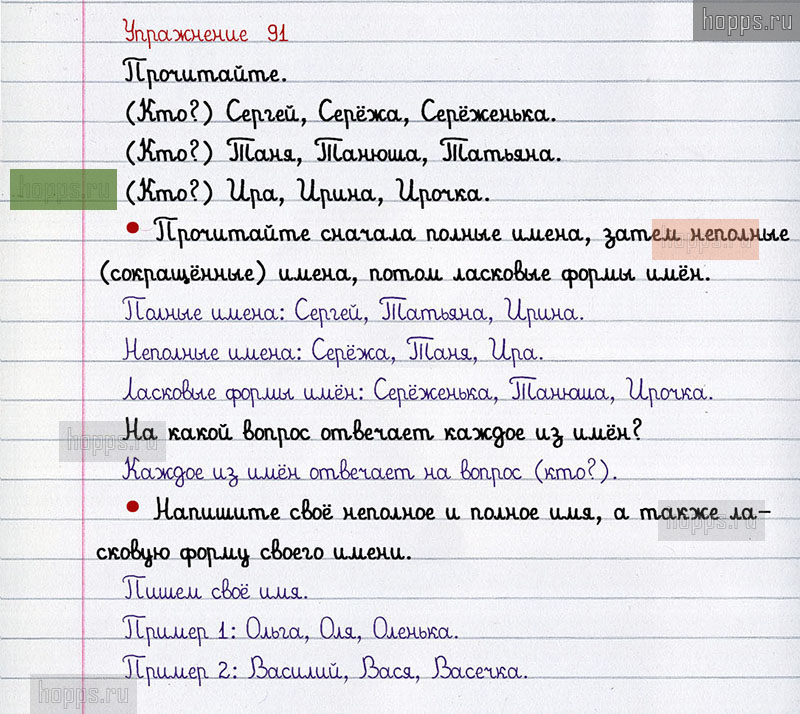 hopps.ru
Упражнение 91
Прочитайте.
(Кто?) Сергей, Серёжа, Серёженька.
(Кто?) Таня, Танюша, Татьяна.
hopps.ru
(Кто?) Ира, Ирина, Ирочка.
• Прочитайте сначала полные имена, затем неполные
hopps.ru
(сокращённые) имена, потом ласковые формы имён.
Полные имена: Сергей, Татьяна, Ирина.
Неполные имена: Серёжа, Таня, Ира.
Ласковые формы имён: Серёженька, Танюша, Ирочка.
hopps.ru
На какой вопрос отвечает каждое из имён?
Каждое из имён отвечает на вопрос (кто?).
• Напишите своё неполное и полное имя, а также ла-
hopps.ru
сковую форму своего имени.
Пишем своё имя.
Пример 1: Ольга, Оля, Оленька.
Пример 2: Василий, Вася, Васечка.
hopps.ru